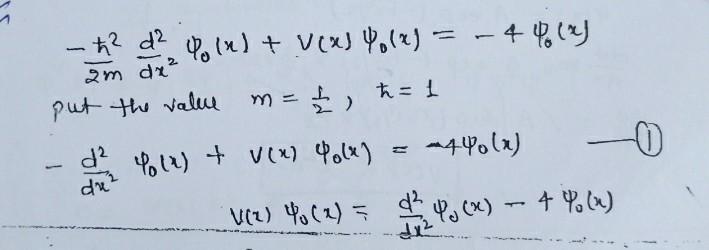 -ħ²/2m d²/dx² ψ₀(x) + V(x) ψ₀(x) = -4 ψ₀(x)
put the value m = 1/2, ħ = 1
- d²/dx² ψ₀(x) + V(x) ψ₀(x) = -4ψ₀(x) —①
V(x) ψ₀(x) = d²/dx² ψ₀(x) - 4 ψ₀(x)